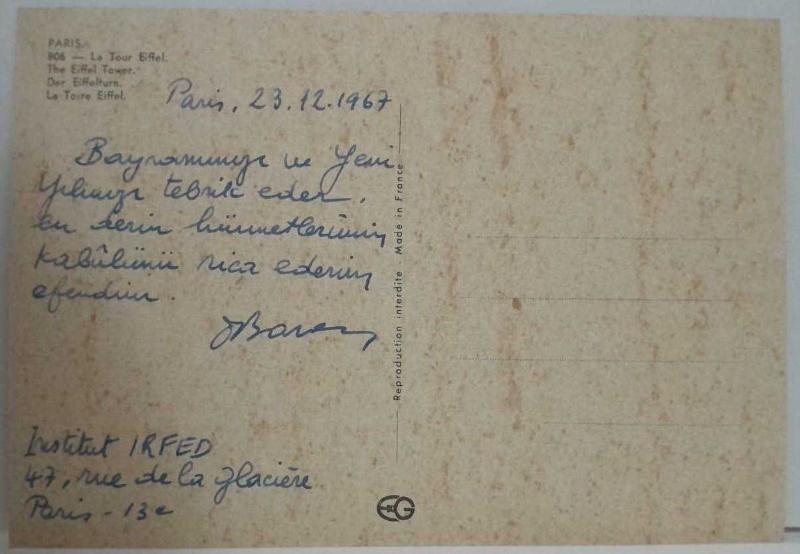 PARIS.
806 — La Tour Eiffel.
The Eiffel Tower.
Der Eiffelturn.
La Toire Eiffel.
Paris, 23.12.1967
Bayramınızı ve Yeni
Yılınızı tebrik eder,
en derin hürmetlerimin
kabûlünü rica ederim
efendim.
Reproduction interdite Made in France
Institut IRFED
47, rue de la Glacière
Paris - 13e
EKG